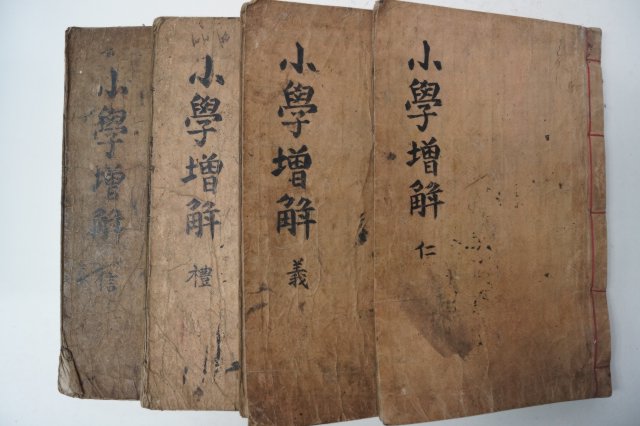 小學增解 仁
小學增解 義
小學增解 禮
小學增解 信